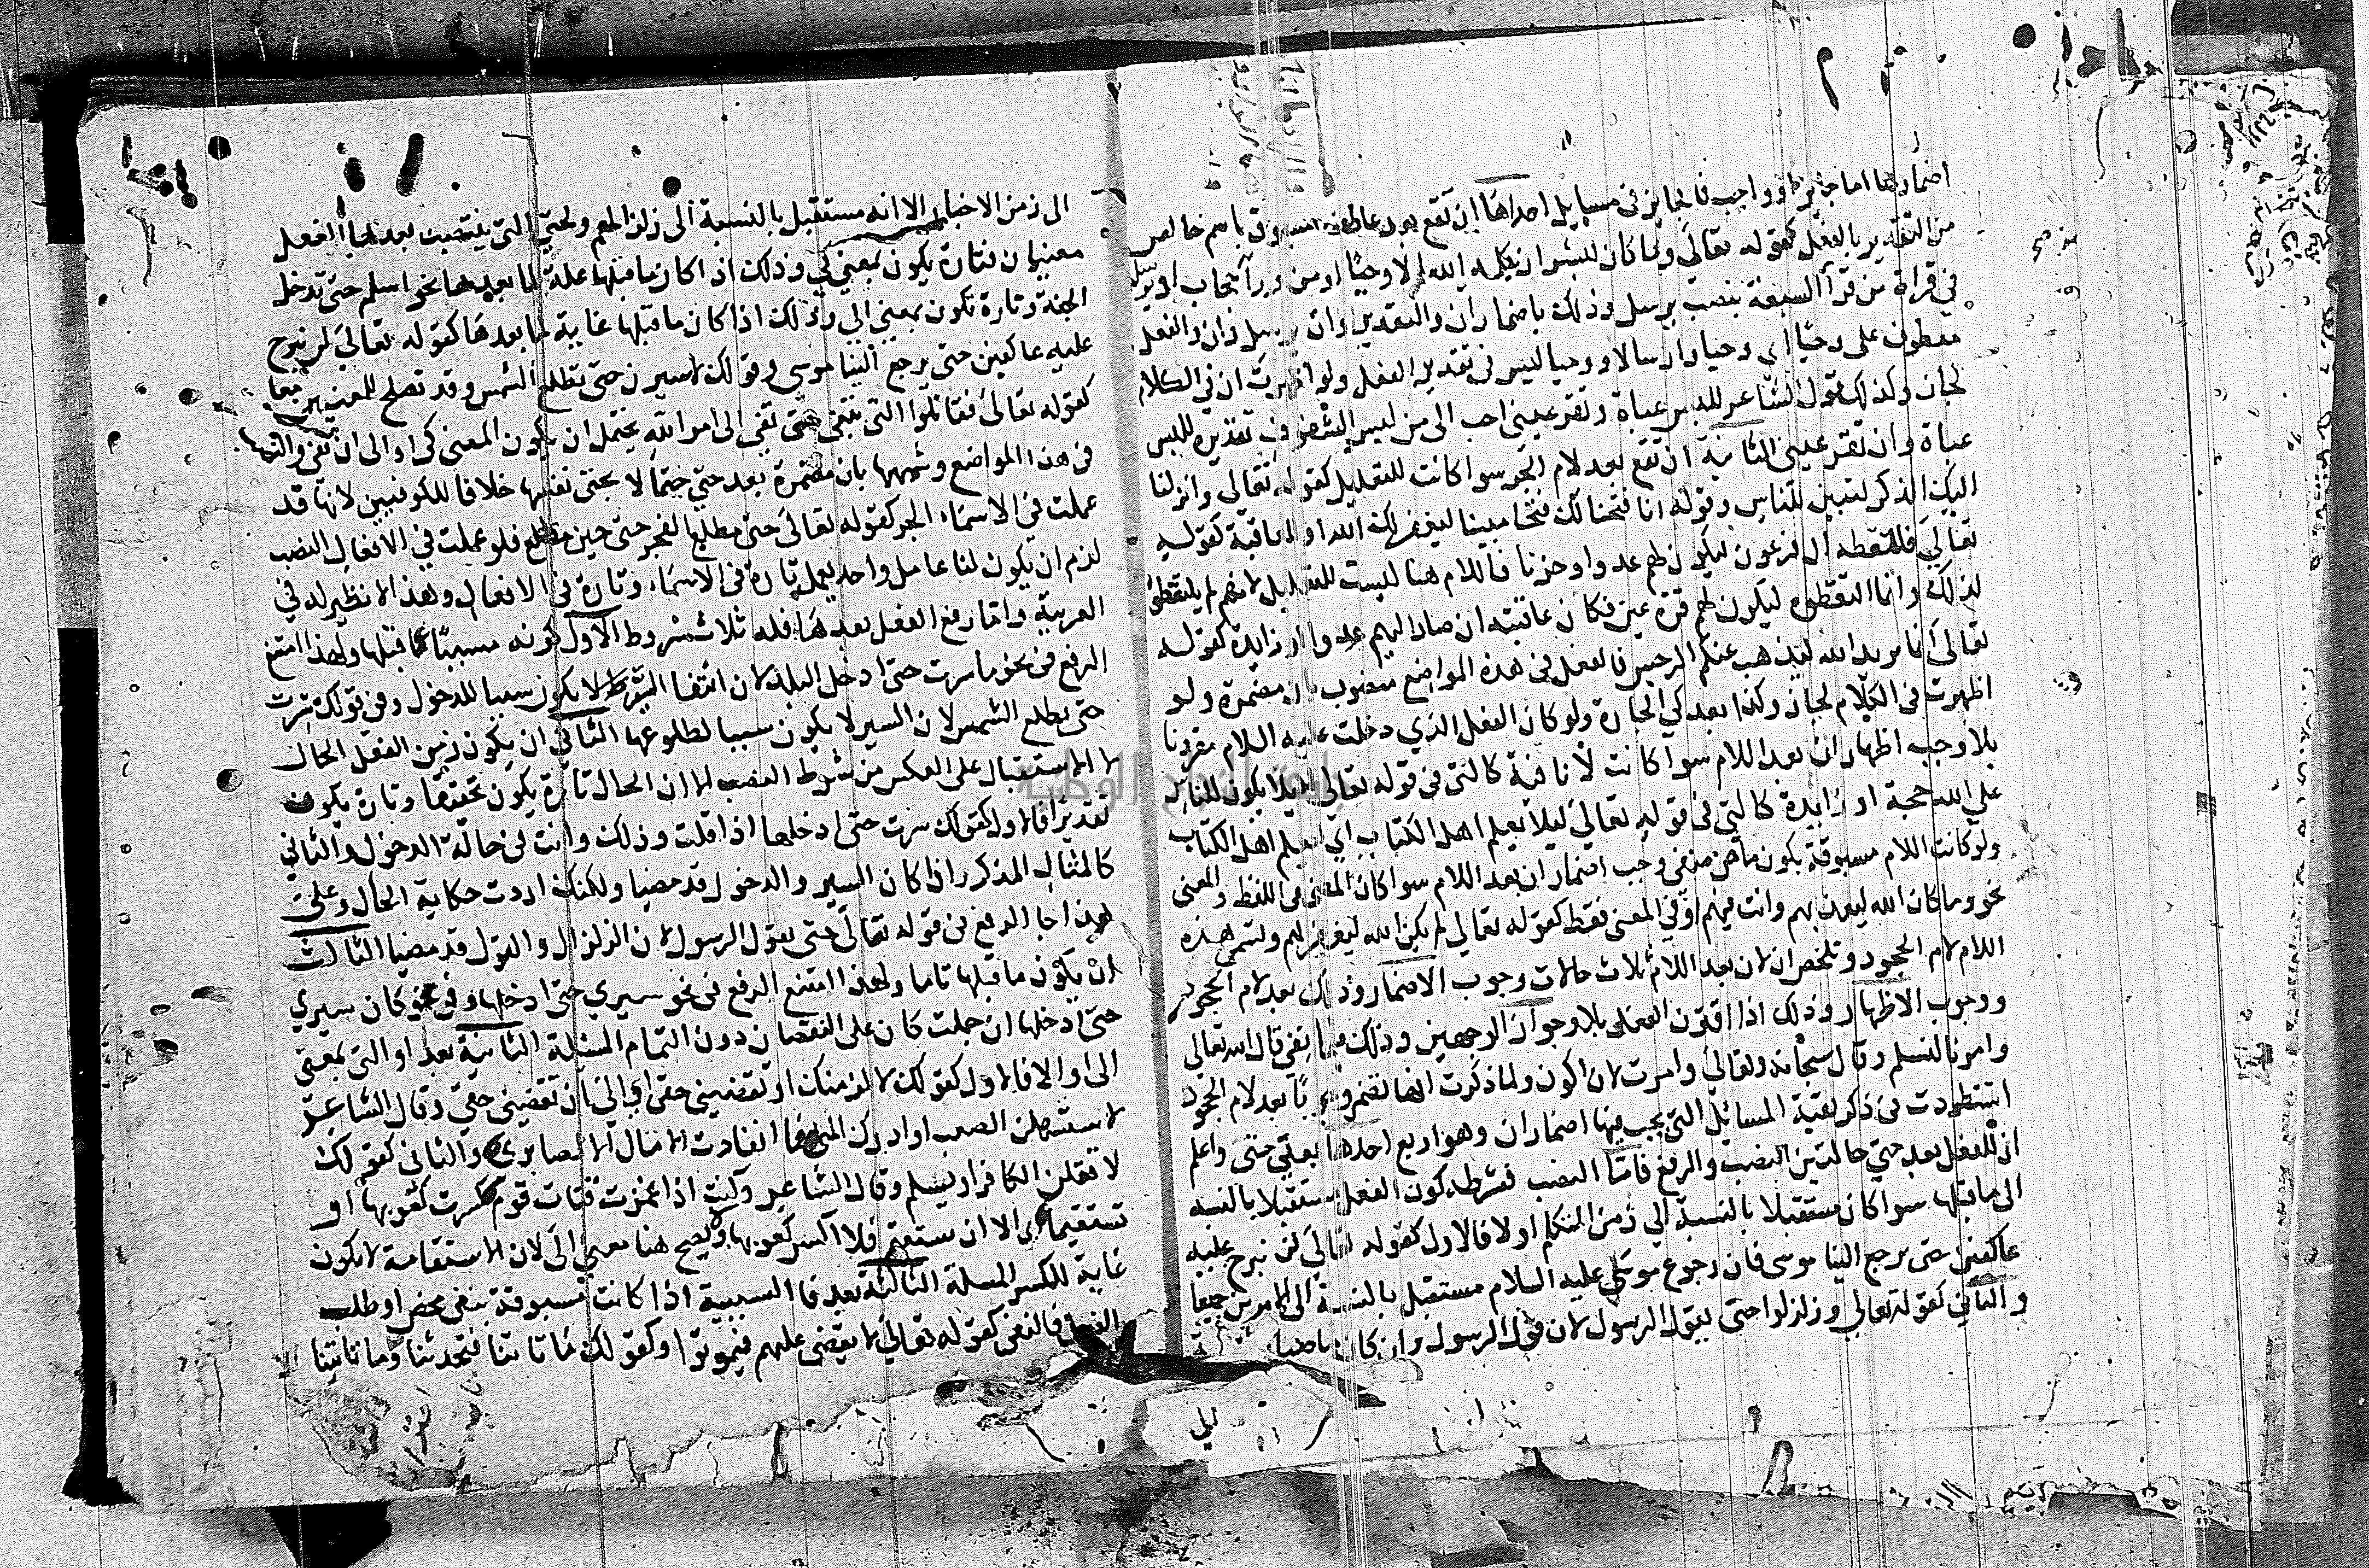 اضمارها اما جايز او واجب فالجايز في مسايل احداها ان تقع بعد عاطف مسبوق باسم خالص
من التقدير بالفعل كقوله تعالى وما كان لبشر ان يكلمه الله الا وحيا او من ورآ حجاب او يرسل
في قراة من قرآ السبعة بنصب يرسل وذلك باضمار ان والتقدير او ان يرسل وان والفعل
معطوف على وحيا اي وحيا وارسالا ووحيا ليس في تقدير الفعل ولو اظهرت ان في الكلام
لجاز وكذلك قول الشاعر للبس عباة وتقر عيني احب الى من لبس الشفوف تقديره للبس
عباة وان تقر عيني الثانية ان تقع بعد لام الجر سوا كانت للتعليل كقوله تعالى وانزلنا
اليك الذكر لتبين للناس وقوله انا فتحنا لك فتحا مبينا ليغفر لك الله او العاقبة كقوله
تعالى فالتقطه ال فرعون ليكون لهم عدوا وحزنا فاللام هنا ليست للتعليل لانهم لم يلتقطوه
لذلك وانما التقطوه ليكون لهم قرة عين فكان عاقبته ان صار اليهم عدوا او زايدة كقوله
تعالى انما يريد الله ليذهب عنكم الرجس فالفعل في هذه المواضع منصوب بان مضمرة ولو
اظهرت في الكلام لجاز وكذا بعد كي الجارة ولو كان الفعل الذي دخلت عليه اللام مقرونا
بلا وجب اظهار ان بعد اللام سوا كانت لا نافية كالتي في قوله تعالى ليلا يكون للناس
على الله حجة او زايدة كالتي في قوله تعالى ليلا يعلم اهل الكتاب اي ليعلم اهل الكتاب
ولو كانت اللام مسبوقة بكون ماض منفي وجب اضمار ان بعد اللام سوا كان المضي في اللفظ والمعنى
نحو وما كان الله ليعذبهم وانت فيهم او في المعنى فقط كقوله تعالى لم يكن الله ليغفر لهم وتسمى هذه
اللام لام الجحود وتلخص ان لان بعد اللام ثلاث حالات وجوب الاضمار وذلك بعد لام الجحود
ووجوب الاظهار وذلك اذا اقترن الفعل بلا وجواز الوجهين وذلك فيما بقي قال الله تعالى
وامرنا لنسلم وقال سبحانه وتعالى وامرت لان اكون ولما ذكرت انها تضمر وجوبا بعد لام الجحود
استطردت في ذكر بقية المسائل التي يجب فيها اضمار ان وهو اربع احداها بعد حتى واعلم
ان للفعل بعد حتى حالتين النصب والرفع فاما النصب فشرطه كون الفعل مستقبلا بالنسبه
الى ما قبلها سوا كان مستقبلا بالنسبة الى زمن المتكلم اولا فالاول كقوله تعالى لن نبرح عليه
عاكفين حتى يرجع الينا موسى فان رجوع موسى عليه السلام مستقبل بالنسبة الى الامرين جميعا
والثاني كقوله تعالى وزلزلوا حتى يقول الرسول لان قول الرسول وان كان ماضيا
الى زمن الاخبار الا انه مستقبل بالنسبة الى زلزالهم ولحتى التي ينتصب بعدها الفعل
معنيان فتارة يكون بمعني كي وذلك اذا كان ما قبلها علة لما بعدها نحو اسلم حتى تدخل
الجنة وتارة تكون بمعني الي وذلك اذا كان ما قبلها غاية لما بعدها كقوله تعالي لن نبرح
عليه عاكفين حتى يرجع الينا موسى وقولك لاسيرن حتى تطلع الشمس وقد تصلح للمعنيين معا
كقوله تعالى فقاتلوا التي تبغي حتى تفي الى امر الله يحتمل ان يكون المعنى كي او الى ان تفي والنصب
في هذا المواضع وشبهها بان مضمرة بعد حتى حتما لا بحتى نفسها خلافا للكوفيين لانها قد
عملت في الاسماء الجر كقوله تعالى حتى مطلع الفجر حتى حين فلو عملت في الافعال النصب
لزم ان يكون لنا عامل واحد يعمل تارة في الاسماء وتارة في الافعال وهذا لا نظير له في
العربية واما رفع الفعل بعدها فله ثلاث شروط الاول كونه مسببا عما قبلها ولهذا امتنع
الرفع في نحو ما سرت حتى ادخل البلد لان انتفا السير لا يكون سببا للدخول وفي قولك سرت
حتى تطلع الشمس لان السير لا يكون سببا لطلوعها الثاني ان يكون زمن الفعل الحال
لا الاستقبال على العكس من شرط النصب الا ان الحال تارة يكون تحقيقا وتارة يكون
تقديرا فالاول كقولك سرت حتى ادخلها اذا قلت وذلك وانت في حالة الدخول والثاني
كالمثال المذكر اذا كان السير والدخول قد مضيا ولكنك اردت حكاية الحال وعلى
هذا جا الرفع في قوله تعالى حتى يقول الرسول لان الزلزال والقول قد مضيا الثالث
ان يكون ما قبلها تاما ولهذا امتنع الرفع في نحو سيري حتى ادخلها وفي نحو كان سيري
حتى ادخلها ان حملت كان على النقصان دون التمام المسئلة الثانية بعد او التي بمعنى
الى او الا فالاول كقولك لالزمنك او تقضيني حقى اي الي ان تقضيني حقي وقال الشاعر
لاستسهلن الصعب او ادرك المنى فما انقادت الامال الا لصابر والثاني كقولك
لا قتلن الكافر او يسلم وقال الشاعر وكنت اذا غمزت قنات قوم كسرت كعوبها او
تستقيما اي الا ان تستقيم فلا اكسر كعوبها ولا يصح هنا معنى الى لان الاستقامة لا يكون
غاية للكسر المسلة الثالثة بعد فا السببية اذا كانت مسبوقة بنفي محض او طلب
بالفعل فالنفي كقوله تعالى لا يقضى عليهم فيموتوا وكقولك ما تاتنا فتحدثنا وما تاتينا